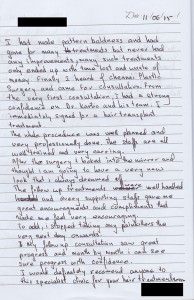 Date 11/06/15
I had male pattern baldness and had
gone for many treatments but never had
any improvements, many such treatments
only ended up with time lost and waste of
money. Finally I heard of Chennai Plastic
Surgery and came for consultation. From
the very first consultation I had a strong
confidence on Dr. Karthi and his team. I
immediately signed for a hair transplant
treatment.
The whole procedure was well planned and
very professionally done. The staffs are all
well trained and very caring.
After the surgery I looked into the mirror and
thought I am going to have a very new
look that I always dreamed of.
The follow up treatments well handled
and every supporting staffs gave me
great encouragements and compliments that
made me feel very encouraging.
To add, I stopped taking my painkillers the
very next day onwards.
My follow-up consultation saw great
progress and month by month I can see
sure progress and confidence.
I would definitely recommend anyone to
this specialist clinic for your hair treatments.